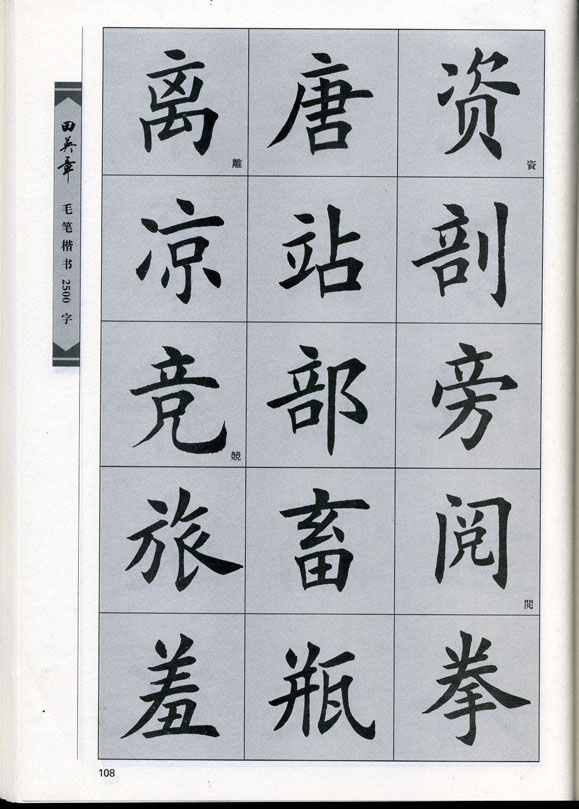 田英章 毛笔楷书2500字
离 離 唐 资 資
凉 站 剖
竞 競 部 旁
旅 畜 阅 閱
羞 瓶 拳
108